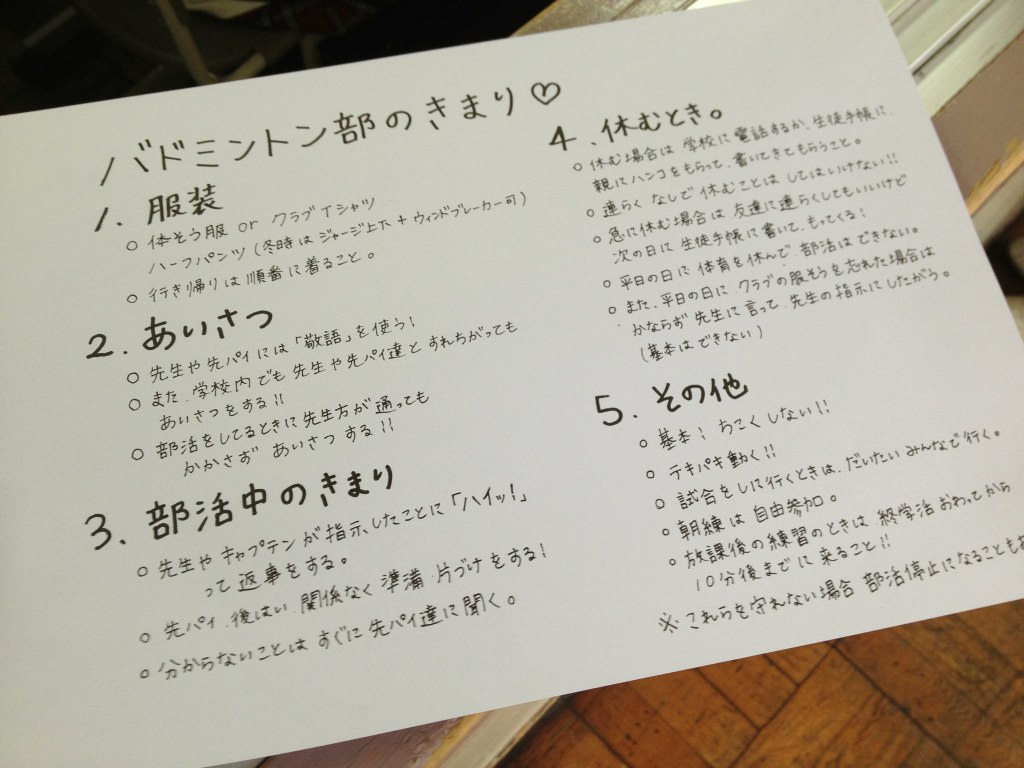 バドミントン部のきまり♡
1. 服装
○ 体そう服 or クラブTシャツ
ハーフパンツ(冬時はジャージ上下+ウィンドブレーカー可)
○ 行き帰りは順番に着ること。
2. あいさつ
○ 先生や先パイには「敬語」を使う!
○ また、学校内でも先生や先パイ達とすれちがっても
あいさつをする!!
○ 部活をしてるときに先生方が通っても
かかさず あいさつする!!
3. 部活中のきまり
○ 先生やキャプテンが指示したことに「ハイッ!」
って返事をする。
○ 先パイ、後はい、関係なく準備片づけをする!
○ 分からないことはすぐに先パイ達に聞く。
4. 休むとき。
○ 休む場合は学校に電話するか、生徒手帳に、
親にハンコをもらって、書いてきてもらうこと。
○ 連らくなしで休むことはしてはいけない!!
○ 急に休む場合は友達に連らくしてもいいけど
次の日に生徒手帳に書いて、もってくる!
○ 平日の日に体育を休んで、部活はできない。
○ また、平日の日にクラブの服そうを忘れた場合は
かならず先生に言って、先生の指示にしたがう。
(基本はできない)
5. その他
○ 基本! ちこくしない!!
○ テキパキ動く!!
○ 試合をしに行くときは、だいたいみんなで行く。
○ 朝練は自由参加。
○ 放課後の練習のときは、終学活おわってから
10分後までに来ること!!
※これらを守れない場合 部活停止になることも